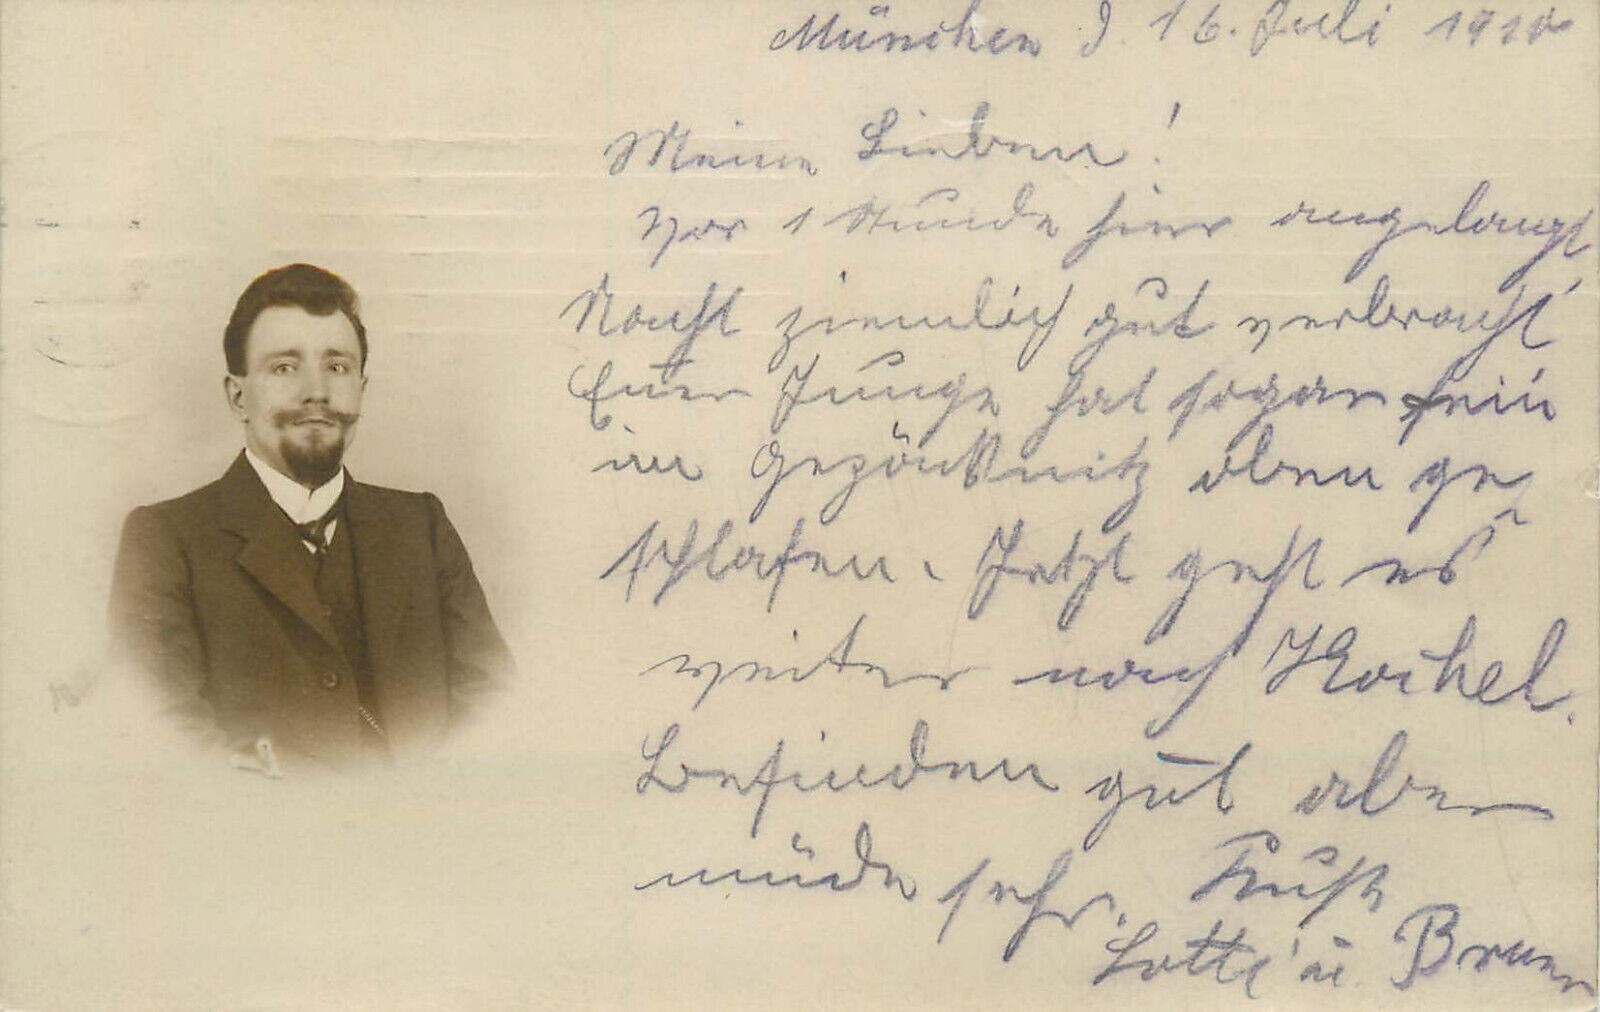 München d. 16. Juli 1910
Meine Lieben!
Vor 1 Stunde hier angelangt,
Nacht ziemlich gut verbracht
Euer Junge hat sogar fein
im oben ge-
schlafen. Jetzt geht es
weiter nach Kochel.
Befinden gut aber
müde sehr.
Lotte u. Bruno